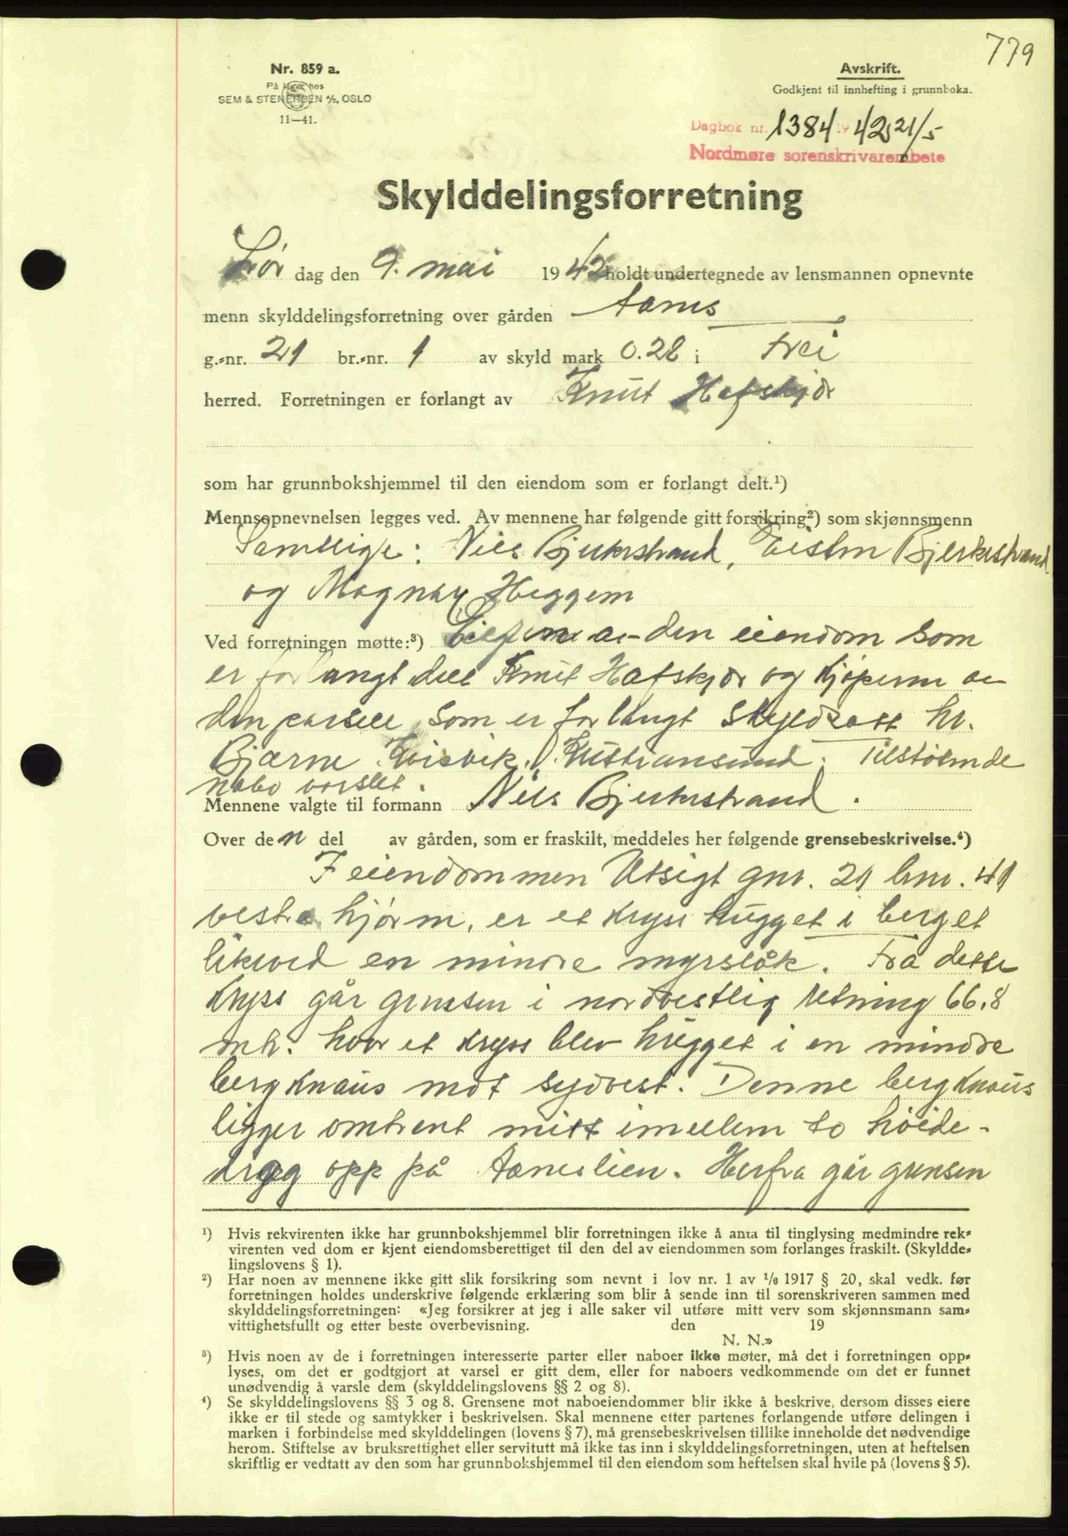 779
Nr. 859 a.
På lager hos
SEM & STENERSEN A/S, OSLO
11—41.
Avskrift.
Godkjent til innhefting i grunnboka.
Dagbok nr. 1384 19 42 21/5
Nordmøre sorenskrivarembete
Skylddelingsforretning
Lør dag den 9. mai 1942 holdt undertegnede av lensmannen opnevnte
menn skylddelingsforretning over gården Aanes
g.-nr. 21 br.-nr. 1 av skyld mark 0.28 i Frei
herred. Forretningen er forlangt av Knut Hafskjær
som har grunnbokshjemmel til den eiendom som er forlangt delt.¹)
Mennsopnevnelsen legges ved. Av mennene har følgende gitt forsikring²) som skjønnsmenn
Samtlige: Nils Bjerkestrand, Bjerkestrand
og Magnar Heggem
Ved forretningen møtte:³) Eieren av den eiendom som
er forlangt delt Knut Hafskjær og kjøperen av
den parsell som er forlangt skyldsatt hr.
Bjarne Kvisvik, Kristiansund. Tilstøtende
nabo varslet.
Mennene valgte til formann Nils Bjerkestrand.
Over den del av gården, som er fraskilt, meddeles her følgende grensebeskrivelse.⁴)
I eiendommen Utsigt gnr. 21 bnr. 41
vestre hjørne, er et kryss hugget i berget
likeved en mindre myrslåk. Fra dette
kryss går grensen i nordvestlig retning 66,8
mtr. hvor et kryss blev hugget i en mindre
bergknaus mot sydvest. Denne bergknaus
ligger omtrent mitt imellem to høide-
drag opp på Aaneslien. Herfra går grensen
¹) Hvis rekvirenten ikke har grunnbokshjemmel blir forretningen ikke å anta til tinglysing medmindre rek-
virenten ved dom er kjent eiendomsberettiget til den del av eiendommen som forlanges fraskilt. (Skyldde-
lingslovens § 1).
²) Har noen av mennene ikke gitt slik forsikring som nevnt i lov nr. 1 av 1/6 1917 § 20, skal vedk. før
forretningen holdes underskrive følgende erklæring som blir å sende inn til sorenskriveren sammen med
skylddelingsforretningen: «Jeg forsikrer at jeg i alle saker vil utføre mitt verv som skjønnsmann sam-
vittighetsfullt og etter beste overbevisning. den 19
N. N.»
³) Hvis noen av de i forretningen interesserte parter eller naboer ikke møter, må det i forretningen opp-
lyses, om det er godtgjort at varsel er gitt dem, eller for naboers vedkommende om det er funnet
unødvendig å varsle dem (skylddelingslovens §§ 2 og 8).
⁴) Se skylddelingslovens §§ 3 og 8. Grensene mot naboeiendommer blir ikke å beskrive, dersom disses eiere
ikke er til stede og samtykker i beskrivelsen. Skal mennene etter partenes forlangende utføre delingen i
marken i forbindelse med skylddelingen (lovens § 7), må grensebeskrivelsen tillike inneholde det nødvendige
herom. Stiftelse av bruksrettighet eller servitutt må ikke tas inn i skylddelingsforretningen, uten at heftelsen
skriftlig er vedtatt av den som har grunnbokshjemmel til den eiendom som heftelsen skal hvile på (lovens § 5).